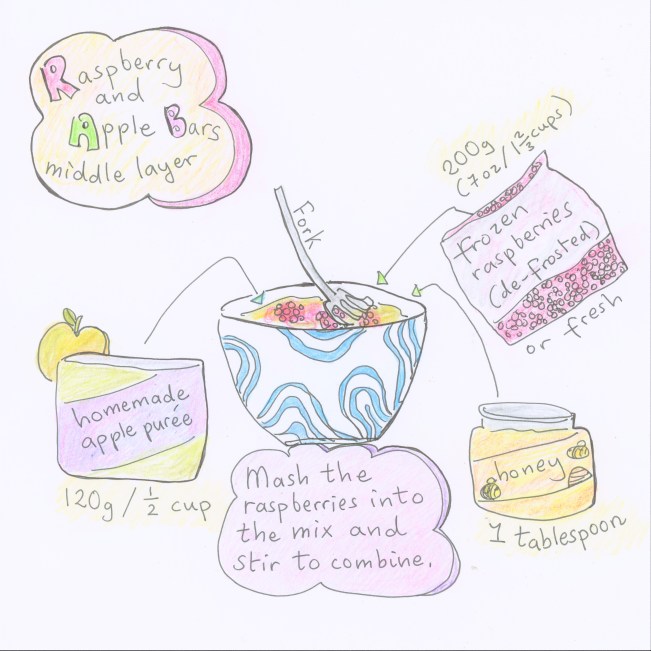 Raspberry
and
Apple Bars
middle layer
200g
(7oz/1⅔cups)
frozen
raspberries
(de-frosted)
or fresh
Fork
homemade
apple purée
120g / ½ cup
honey
1 tablespoon
Mash the
raspberries into
the mix and
stir to combine.